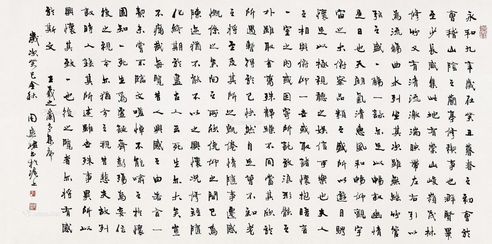 永和九年歲在癸丑暮春之初會於
會稽山陰之蘭亭修禊事也群賢畢
至少長咸集此地有崇山峻嶺茂林
修竹又有清流激湍映帶左右引以
為流觴曲水列坐其次雖無絲竹管
弦之盛一觴一詠亦足以暢敘幽情
是日也天朗氣清惠風和暢仰觀宇
宙之大俯察品類之盛所以遊目騁
懷足以極視聽之娛信可樂也夫人
之相與俯仰一世或取諸懷抱悟言
一室之內或因寄所託放浪形骸之
外雖趣舍萬殊靜躁不同當其欣於
所遇暫得於己快然自足不知老之
將至及其所之既倦情隨事遷感慨
係之矣向之所欣俯仰之間已為
陳迹猶不能不以之興懷況修短隨
化終期於盡古人云死生亦大矣豈
不痛哉每覽昔人興感之由若合一
契未嘗不臨文嗟悼不能喻之於懷
固知一死生為虛誕齊彭殤為妄作
後之視今亦猶今之視昔悲夫故列
敘時人錄其所述雖世殊事異所以
興懷其致一也後之覽者亦將有感
於斯文 王羲之蘭亭集序
歲次癸巳金秋 周